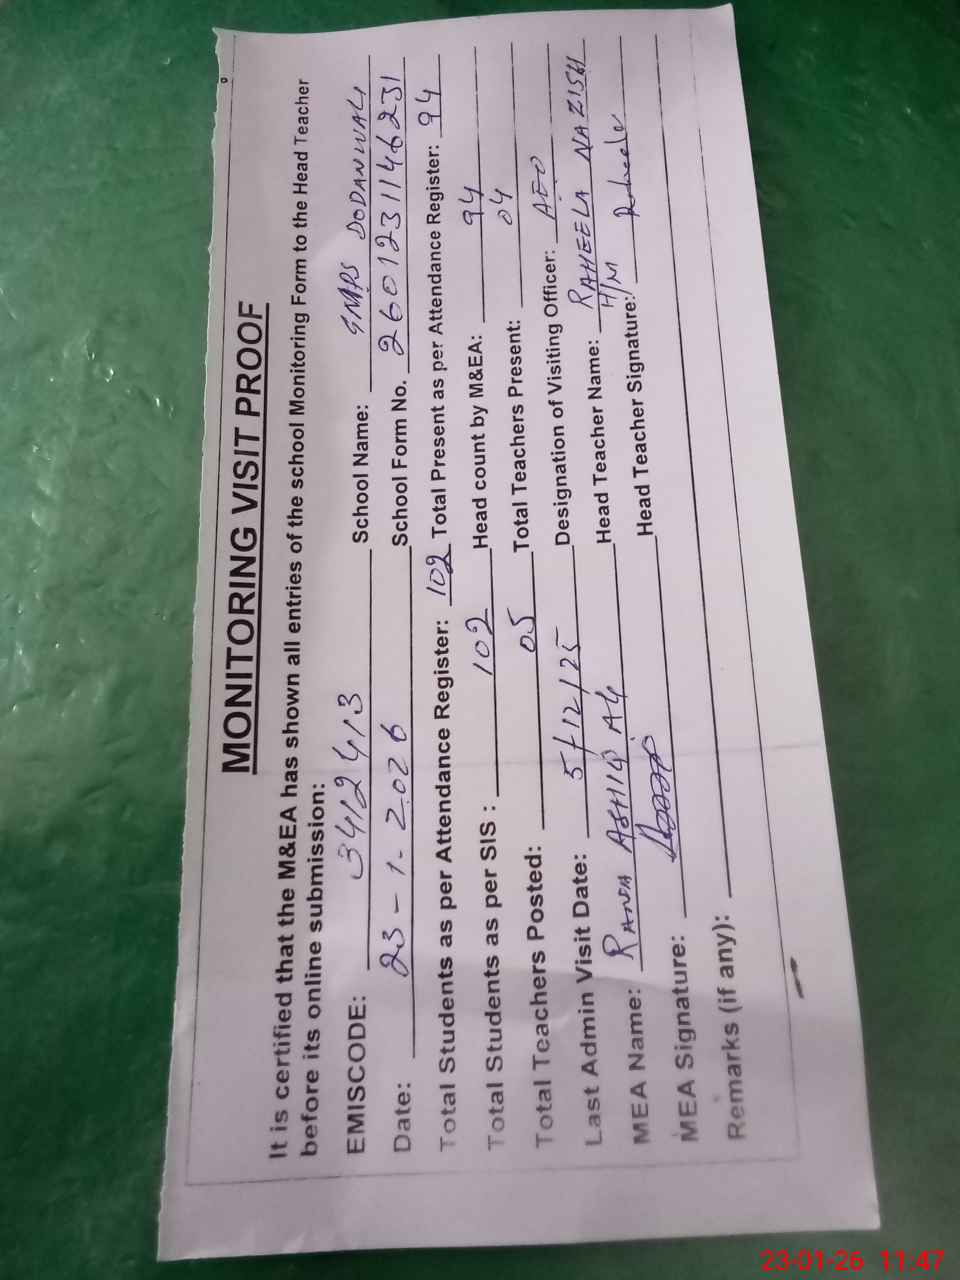 MONITORING VISIT PROOF
It is certified that the M&EA has shown all entries of the school Monitoring Form to the Head Teacher
before its online submission:
EMISCODE: 3412413 School Name: GMPS DODANWALI
Date: 23-1-2026 School Form No. 2601231146231
Total Students as per Attendance Register: 102 Total Present as per Attendance Register: 94
Total Students as per SIS: 102 Head count by M&EA: 94
Total Teachers Posted: 05 Total Teachers Present: 04
Last Admin Visit Date: 5/12/25 Designation of Visiting Officer: AEO
MEA Name: RANA ASHIQ Ali Head Teacher Name: RAHEELA NAZISH
H/M
MEA Signature: Head Teacher Signature: Raheela
Remarks (if any):
23-01-26 11:47